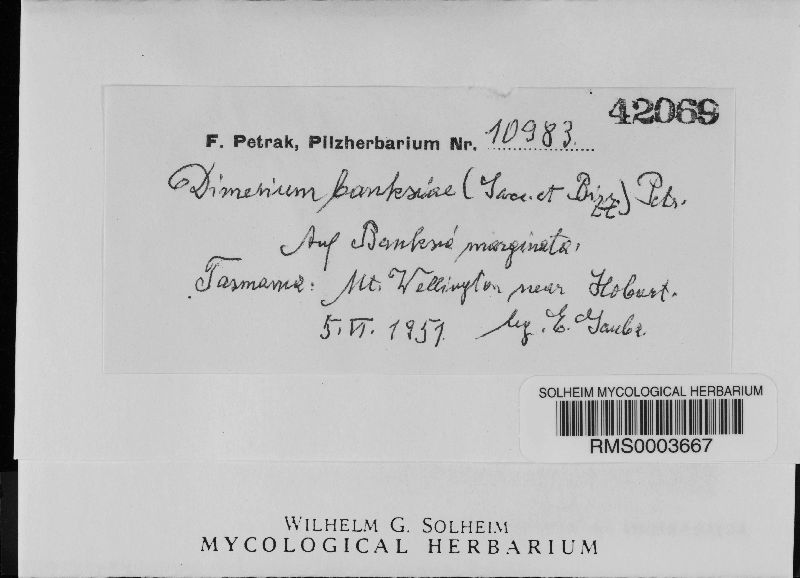 42069
F. Petrak, Pilzherbarium Nr. 10983.
Dimerium banksiae (Sacc. et Bizz.) Petr.
Auf Banksia marginata.
Tasmania: Mt. Wellington near Hobart.
5.VI. 1951. leg. E. Gauba.
SOLHEIM MYCOLOGICAL HERBARIUM
RMS0003667
WILHELM G. SOLHEIM
MYCOLOGICAL HERBARIUM